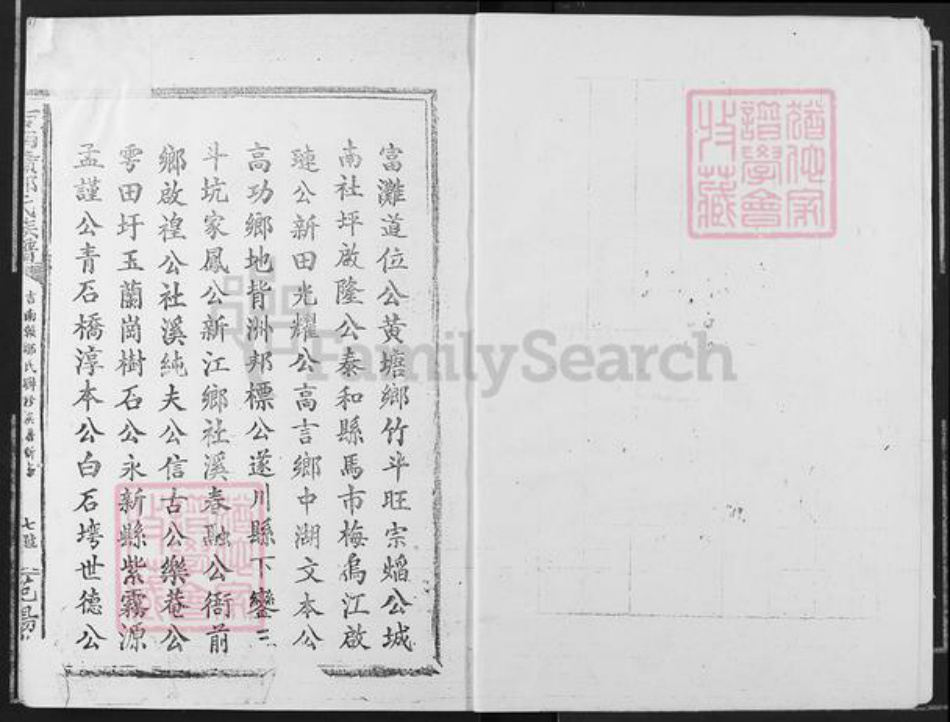 譜學會
收藏
富灘道位公黃塘鄉竹斗旺宗媼公城
南社坪啟隆公泰和縣馬市梅烏江啟
璉公新田光耀公高言鄉中湖文本公
高功鄉地背洲邦標公遂川縣下鑾三
斗坑家鳳公新江鄉社溪春融公衙前
鄉啟禋公社溪純夫公信古公樂菴公
雩田圩玉蘭崗樹石公永新縣紫霧源
孟謹公青石橋淳本公白石塆世德公
氏族譜
七號
FamilySearch